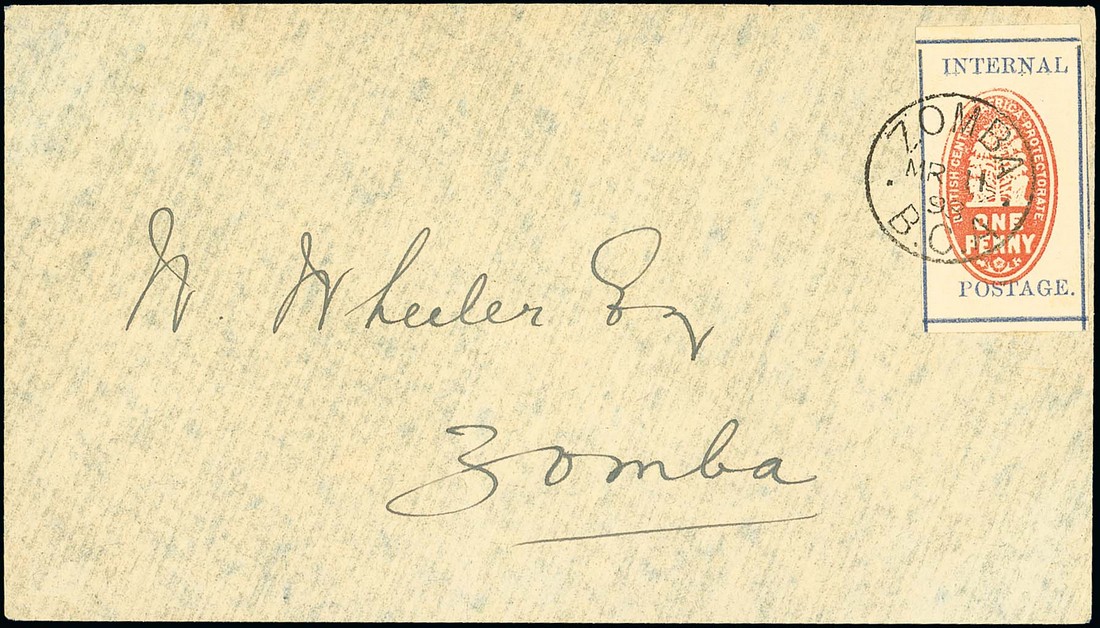 INTERNAL
BRITISH CENTRAL AFRICA PROTECTORATE
ONE
PENNY
POSTAGE.
ZOMBA
MR 11
98
B.C.A.
W. Wheeler Esq
Zomba